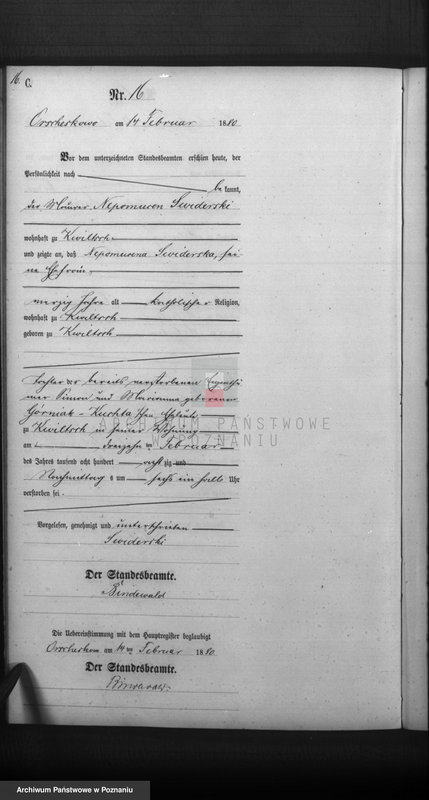 16.
C.
Nr. 16
Orscherkowo am 14 Februar 1880
Vor dem unterzeichneten Standesbeamten erschien heute, der
Persönlichkeit nach
be kannt,
der Maurer Nepomucen Swiderski
wohnhaft zu Kwiltsch
und zeigte an, daß Nepomucena Swiderska, sei-
ne Ehefrau,
vierzig Jahre alt katholischer Religion,
wohnhaft zu Kwiltsch
geboren zu Kwiltsch
Tochter der bereits verstorbenen
Simon und Marianna geborenen
Górniak - Kuchta schen Eheleute
zu Kwiltsch in seiner Wohnung
am dreizehn ten Februar
des Jahres tausend acht hundert acht zig und
Nachmittag s um sechs ein halb Uhr
verstorben sei
Vorgelesen, genehmigt und unterschrieben
Swiderski
Der Standesbeamte.
Bindewald
Die Uebereinstimmung mit dem Hauptregister beglaubigt
am 14ten Februar 1880.
Der Standesbeamte.
ARCHIWUM PAŃSTWOWE
W POZNANIU
Archiwum Państwowe w Poznaniu